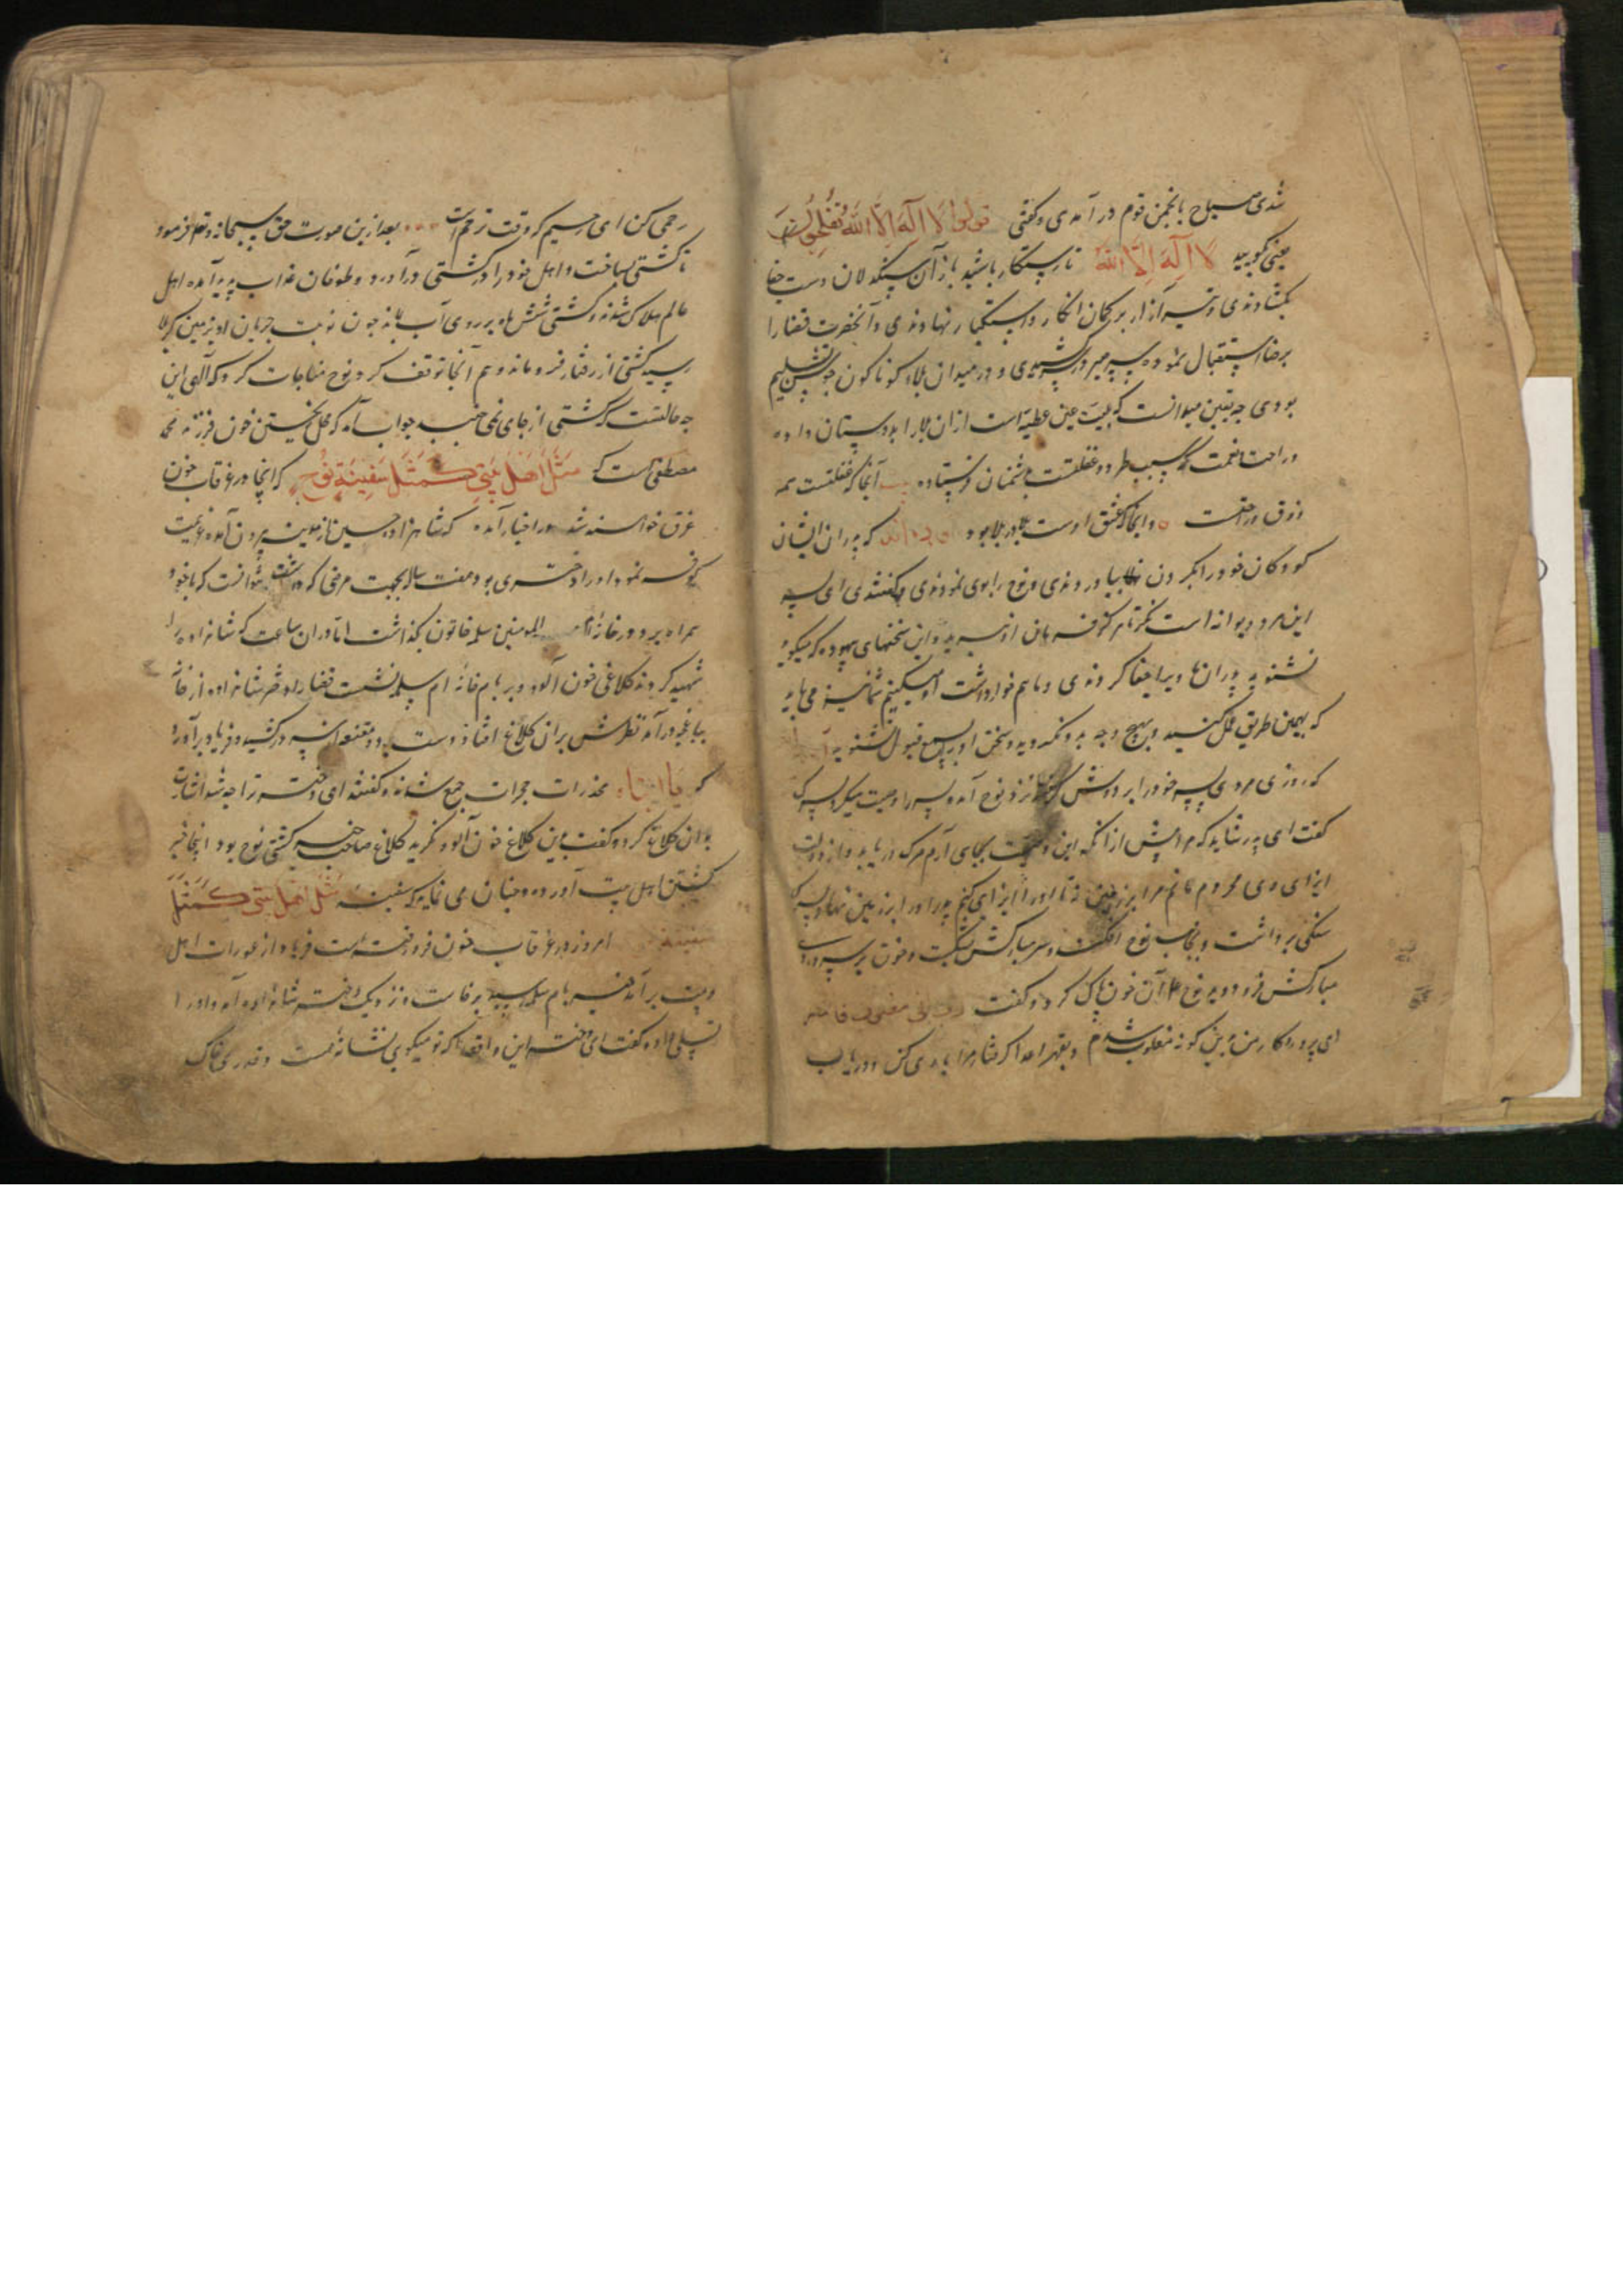 شدی صباح بانجمن قوم در آمدی و گفتی قولوا لا اله الا الله تفلحون
یعنی گویید لا اله الا الله تا رستگار باشید باز آن سنگدلان دست جفا
بگشادندی و تیر آزار بر کمان انکار و استکبار نهادندی و آنحضرت قضا را
برضا استقبال نموده سپر صبر در کشیدی و در میدان بلاء کوناکون جوشن تسلیم
بودی چه یقین میدانست که بلیت عین عطیه است از ان بلا را بدوستان داده
و راحت و نعمت که سبب طرد و غفلتست بدشمنان فرستاده آنجا که غفلتست همه
ذوق و راحت است و انجا که عشق اوست بلا در بلا بود که پدران ایشان
کودکان خود را بکردن بیاوردندی و نوح را بوی نمودندی و گفتندی ای پسر
این مرد دیوانه است نگر تا هرگز فرمان او نبرید و این سخنهای بیهوده که میگوید
نشنوید پدران ما ویرا جفا کردندی و ما هم خوار داشت او میکنیم شما نیز می باید
که بهمین طریق عمل کنید و بهیچ وجه بدو نگروید و سخن او بسمع قبول نشنوید
که روزی مردی پسر خود را بر دوش گرفته نزد نوح آمد و پسر را وصیت میکرد پسرک
گفت ای پدر شاید که مرا پیش از انکه این وصیت بجای آرم مرک دریابد و از دولت
ایزای وی محروم مانم مرا بر زمین نه تا او را ایزای کنم پدر او را بر زمین نهاد پسرک
سنگی برداشت و بجانب نوح افکند و سر مبارکش بشکست و خون بر سر و روی
مبارکش فرو دوید نوح ع آن خون پاک کرد و گفت رب انی مغلوب فانتصر
ای پروردکار من بدین کونه مغلوب شدم و بقهر اعدا گرفتار مرا یاری کن و دریاب
رحمی کن ای رحیم که وقت ترحم است بعد ازین صورت حق سبحانه و تعالی فرمود
تا کشتی بساخت و اهل خود را در کشتی درآورد و طوفان عذاب پدید آمده اهل
عالم هلاک شدند و کشتی شش ماه بر روی آب بماند چون نوبت جریان او بزمین کربلا
رسید کشتی از رفتار فرو ماند و هم آنجا توقف کرد نوح مناجات کرد که الهی این
چه حالتست که کشتی از جای نمی جنبد جواب آمد که محل ریختن خون فرزند محمد
مصطفی است که مثل اهل بیتی کمثل سفینة نوح که اینجا در غرقاب خون
غرق خواهند شد در اخبار آمده که شاهزاده حسین از مدینه بیرون آمده عزیمت
کوفه نمود او را دختری بود هفت ساله بجهت مرضی که داشت نتوانست که با خود
همراه برد در خانه ام المومنین ام سلمه خاتون بگذاشت اما در ان ساعت که شاهزاده را
شهید کردند کلاغی خون آلود بر بام خانه ام سلمه نشست قضا را دختر شاهزاده از خانه
بباغچه درآمد نظرش بران کلاغ افتاد دست زد و مقنعه از سر درکشید و فریاد برآورد
که یا ابتاه مخدرات حجرات جمع شدند و گفتند ای دختر ترا چه شد اشارت
بدان کلاغ کرد و گفت ببین کلاغ خون آلود نگرید کلاغ صاحب خبر کشتی نوح بود اینجا خبر
کشتن اهل بیت آورده و چنان می نماید که سفینه مثل اهل بیتی کمثل
سفینة امروز در غرقاب خون فرو رفته است فریاد از عورات اهل
و بیت برآمد خبر بام سلمه رسید برخاست و نزدیک دختر شاهزاده آمد و او را
تسلی داده گفت ای دختر این واقعه را که تو میگویی نشانه هست و قدری خاک